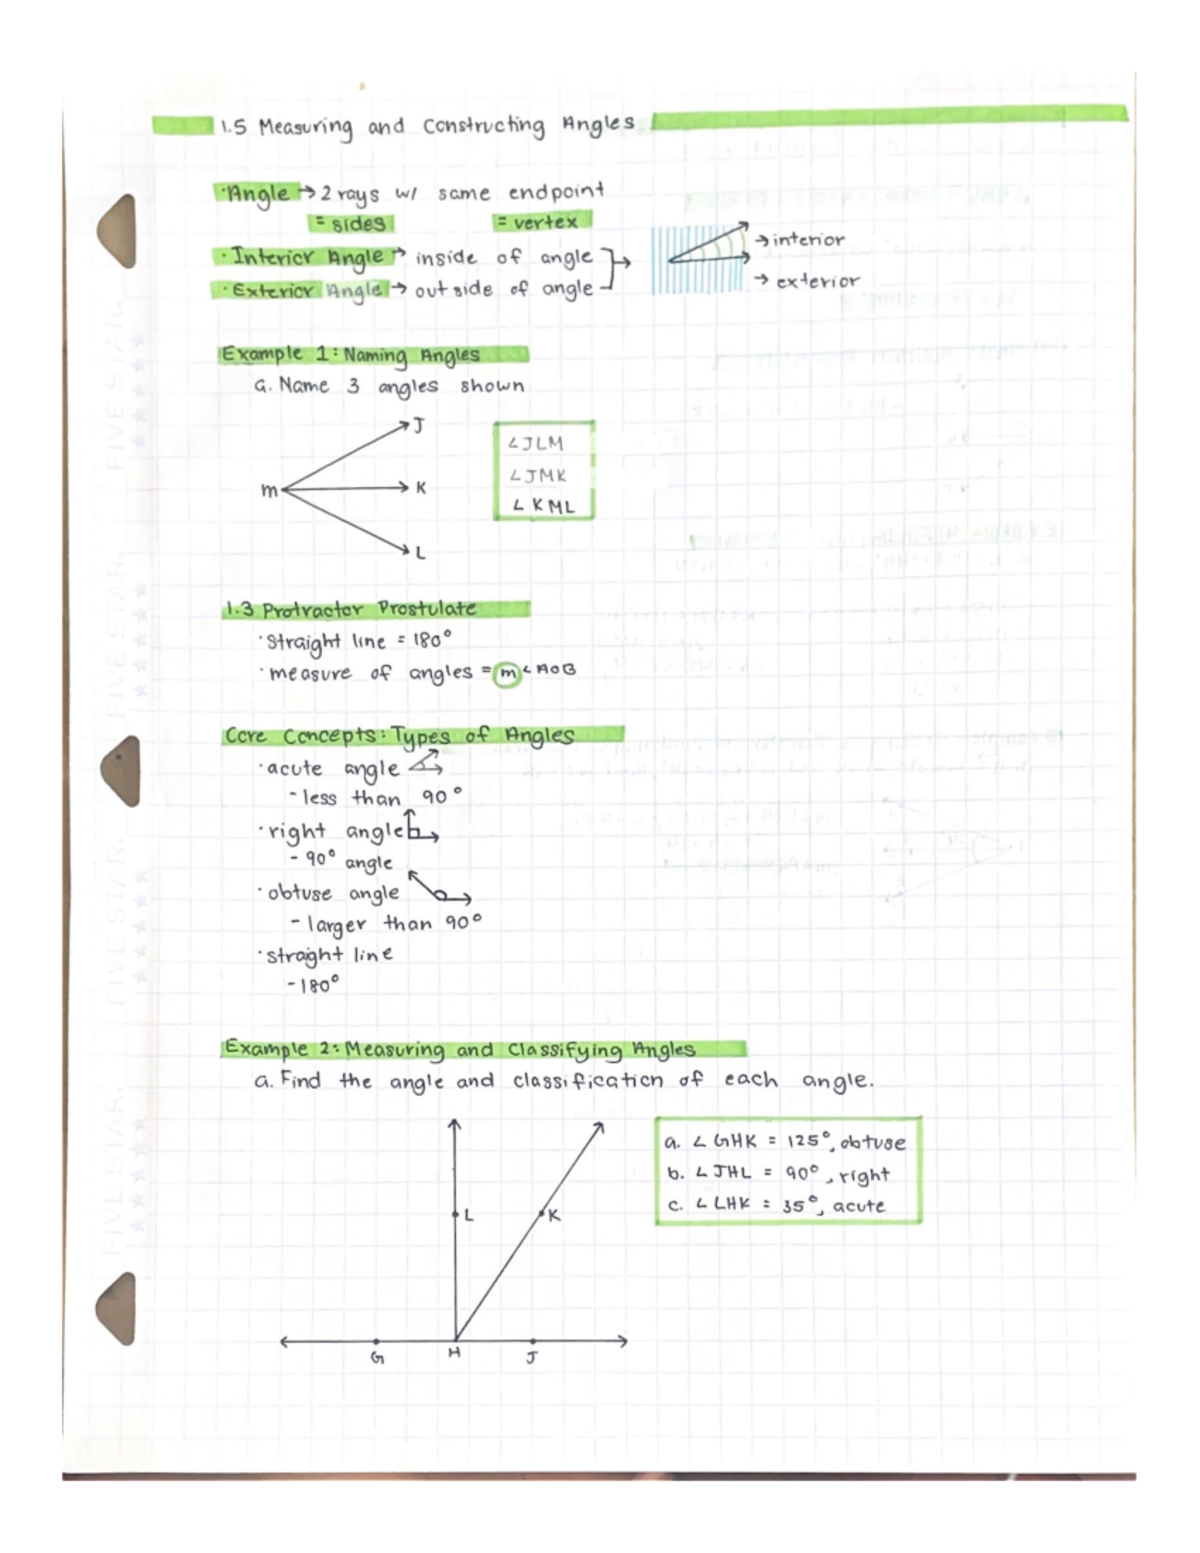 1.5 Measuring and Constructing Angles
·Angle → 2 rays w/ same endpoint
= sides = vertex
· Interior Angle → inside of angle
→ interior
· Exterior Angle → outside of angle
→ exterior
Example 1: Naming Angles
a. Name 3 angles shown
J
∠JLM
∠JMK
m K
∠KML
L
1.3 Protractor Prostulate
·straight line = 180°
·measure of angles = m∠AOB
Core Concepts: Types of Angles
·acute angle
- less than 90°
·right angle
- 90° angle
·obtuse angle
- larger than 90°
·straight line
-180°
Example 2: Measuring and Classifying Angles
a. Find the angle and classification of each angle.
a. ∠GHK = 125°, obtuse
b. ∠JHL = 90°, right
c. ∠LHK = 35°, acute
L K
G H J
FIVE STAR.
FIVE STAR.
FIVE STAR.
FIVE STAR.